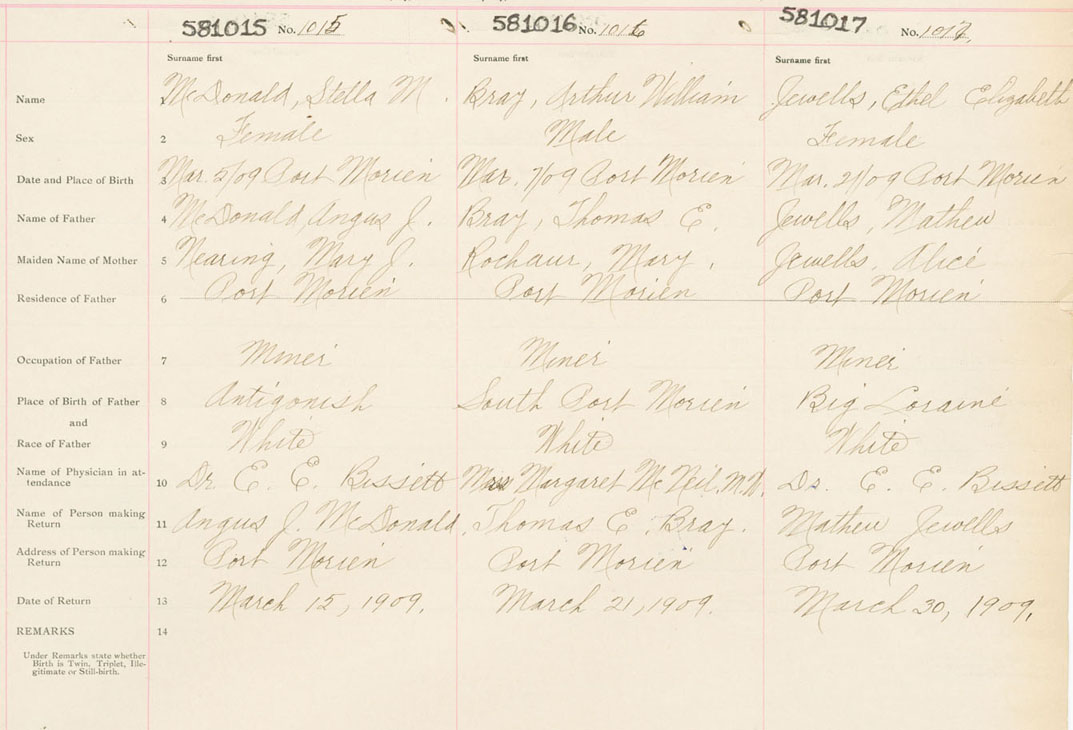 581015 No. 1015 581016 No. 1016 581017 No. 1017
Surname first Surname first Surname first
Name McDonald, Stella M. Bray, Arthur William Jewells, Ethel Elizabeth
Sex 2 Female Male Female
Date and Place of Birth 3 Mar. 5/09 Port Morien Mar. 7/09 Port Morien Mar. 21/09 Port Morien
Name of Father 4 McDonald, Angus J. Bray, Thomas E. Jewells, Mathew
Maiden Name of Mother 5 Nearing, Mary J. Mary. Jewells, Alice
Residence of Father 6 Port Morien Port Morien Port Morien
Occupation of Father 7 Miner Miner Miner
Place of Birth of Father 8 Antigonish South Port Morien Big Loraine
and
Race of Father 9 White White White
Name of Physician in at-
tendance 10 Dr. E. E. Bissett Margaret McNeil, M.W. Dr. E. E. Bissett
Name of Person making
Return 11 Angus J. McDonald. Thomas E. Bray. Mathew Jewells
Address of Person making
Return 12 Port Morien Port Morien Port Morien
Date of Return 13 March 15, 1909. March 21, 1909. March 30, 1909.
REMARKS 14
Under Remarks state whether
Birth is Twin, Triplet, Ille-
gitimate or Still-birth.